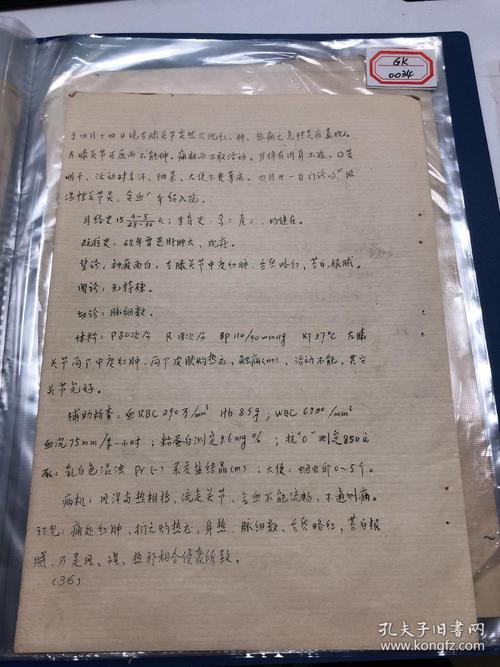 GK
0034
于四月十四日晚左膝关节突然出现红、肿、热痛之急性炎症表现。
左膝关节可屈而不能伸。痛极而不敢活动，且伴有周身不适、口苦
咽干，活动时多汗，纳差，大便不爽等症。四月廿一日门诊以"风
湿性关节炎，贫血"介绍入院。
月经史15 4-5/28-30天；生育史：孕二产二，均健在。
既往史：68年曾患肝肿大，现存。
望诊：神疲面白，左膝关节中度红肿，舌质略红，苔白根腻。
闻诊：无特殊。
切诊：脉细数。
体检：P80次/分 R18次/分 BP110/90mmHg KT37℃ 左膝
关节周围中度红肿，局部皮肤灼热感，触痛(++)，活动不能，其它
关节完好。
辅助检查：血RBC290万/mm³ Hb8.5g；WBC6900/mm³
血沉75mm/第一小时；粘蛋白测定96mg%；抗"O"测定850u
尿：乳白色混浊 Pr(-) 尿酸盐结晶(++)；大便：蛔虫卵0～5个。
病机：风湿与热相搏，流走关节，气血不能流畅，不通则痛。
讨论：痛处红肿，扪之灼热感，身热，脉细数，舌质略红，苔白根
腻，乃是风、湿、热邪相合侵袭所致。
(36)
孔夫子旧书网
kongfz.com